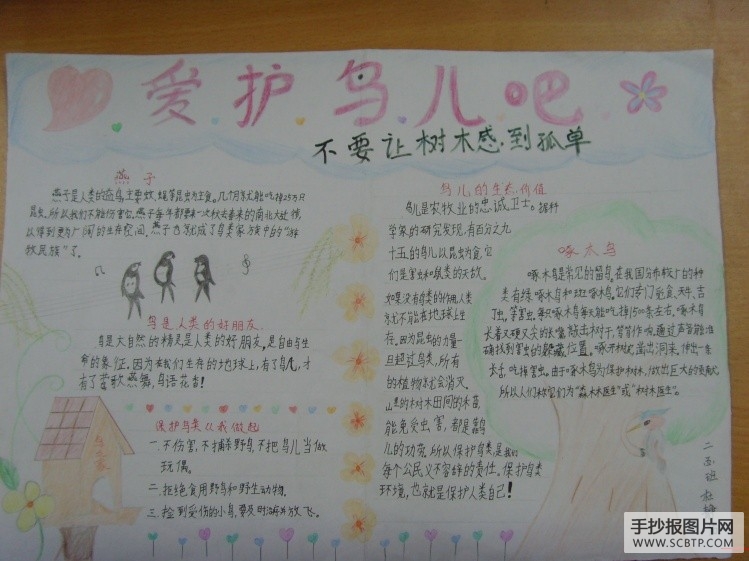 爱护鸟儿吧
不要让树木感到孤单
燕子
燕子是人类的益鸟,主要蚊,蝇等昆虫为主食。几个月就能吃掉25万只
昆虫,所以我们不能伤害它。燕子每年都要来一次秋去春来的南北大迁徙
以得到更为广阔的生存空间。燕子也就成了鸟类家族中的"游
牧民族"了。
鸟是人类的好朋友
鸟是大自然的精灵是人类的好朋友,是自由与生
命的象征。因为在我们生存的地球上,有了鸟儿,才
有了莺歌燕舞,鸟语花香!
保护鸟类从我做起
一.不伤害,不捕杀野鸟,不把鸟儿当做
玩偶。
二.拒绝食用野鸟和野生动物.
三.捡到受伤的小鸟,要及时治疗并放飞。
鸟儿的生态价值
鸟儿是农牧业的忠诚卫士。据科
学家的研究发现,有百分之九
十五的鸟儿以昆虫为食,它
们是害虫和鼠类的天敌。
如果没有鸟类的作用,人类
就不可能在地球上生
存。因为昆虫的力量一
旦超过鸟类,所有
的植物就会消灭。
山里的树木田间的禾苗,
能免受虫害,都是鸟
儿的功劳.所以保护鸟类,是我们
每个公民义不容辞的责任。保护鸟类
环境,也就是保护人类自己!
啄木鸟
啄木鸟是常见的留鸟,在我国分布较广的种
类有绿啄木鸟和斑啄木鸟。它们专门觅食天牛、吉
丁虫,等害虫。每只啄木鸟每天能吃掉1500条左右。啄木鸟
长着又硬又尖的长嘴敲击树干,笃笃作响,通过声音能准
确找到害虫的躲藏位置。啄开树皮,凿出洞来,伸出一条
长舌,吃掉害虫。由于啄木鸟为保护树林,做出巨大的贡献,
所以人们称它们为"森林医生"或"树木医生"。
鸟之家
二
班
手抄报图片网
WWW.SCBTP.COM